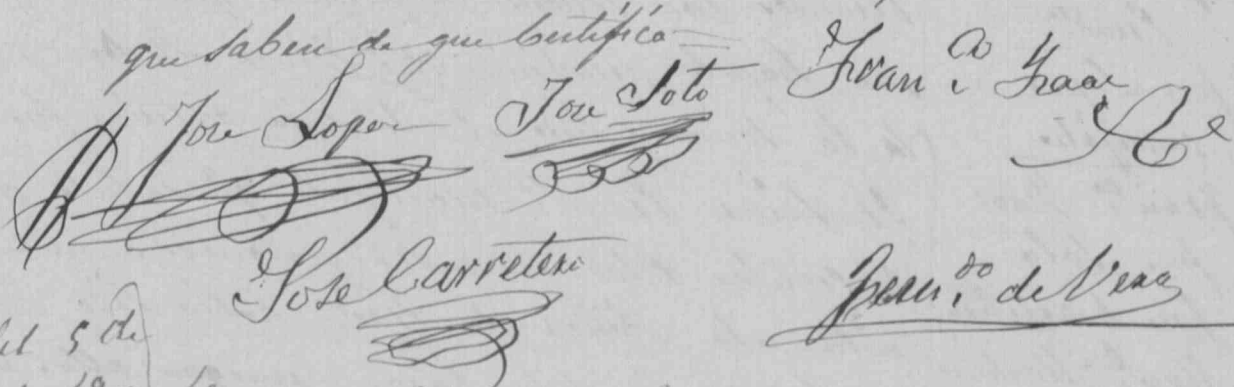 que saben de que Certifico
Jose Lopez Jose Soto Fran.co
Jose Carretero Fern.do de Vera
el 5 de